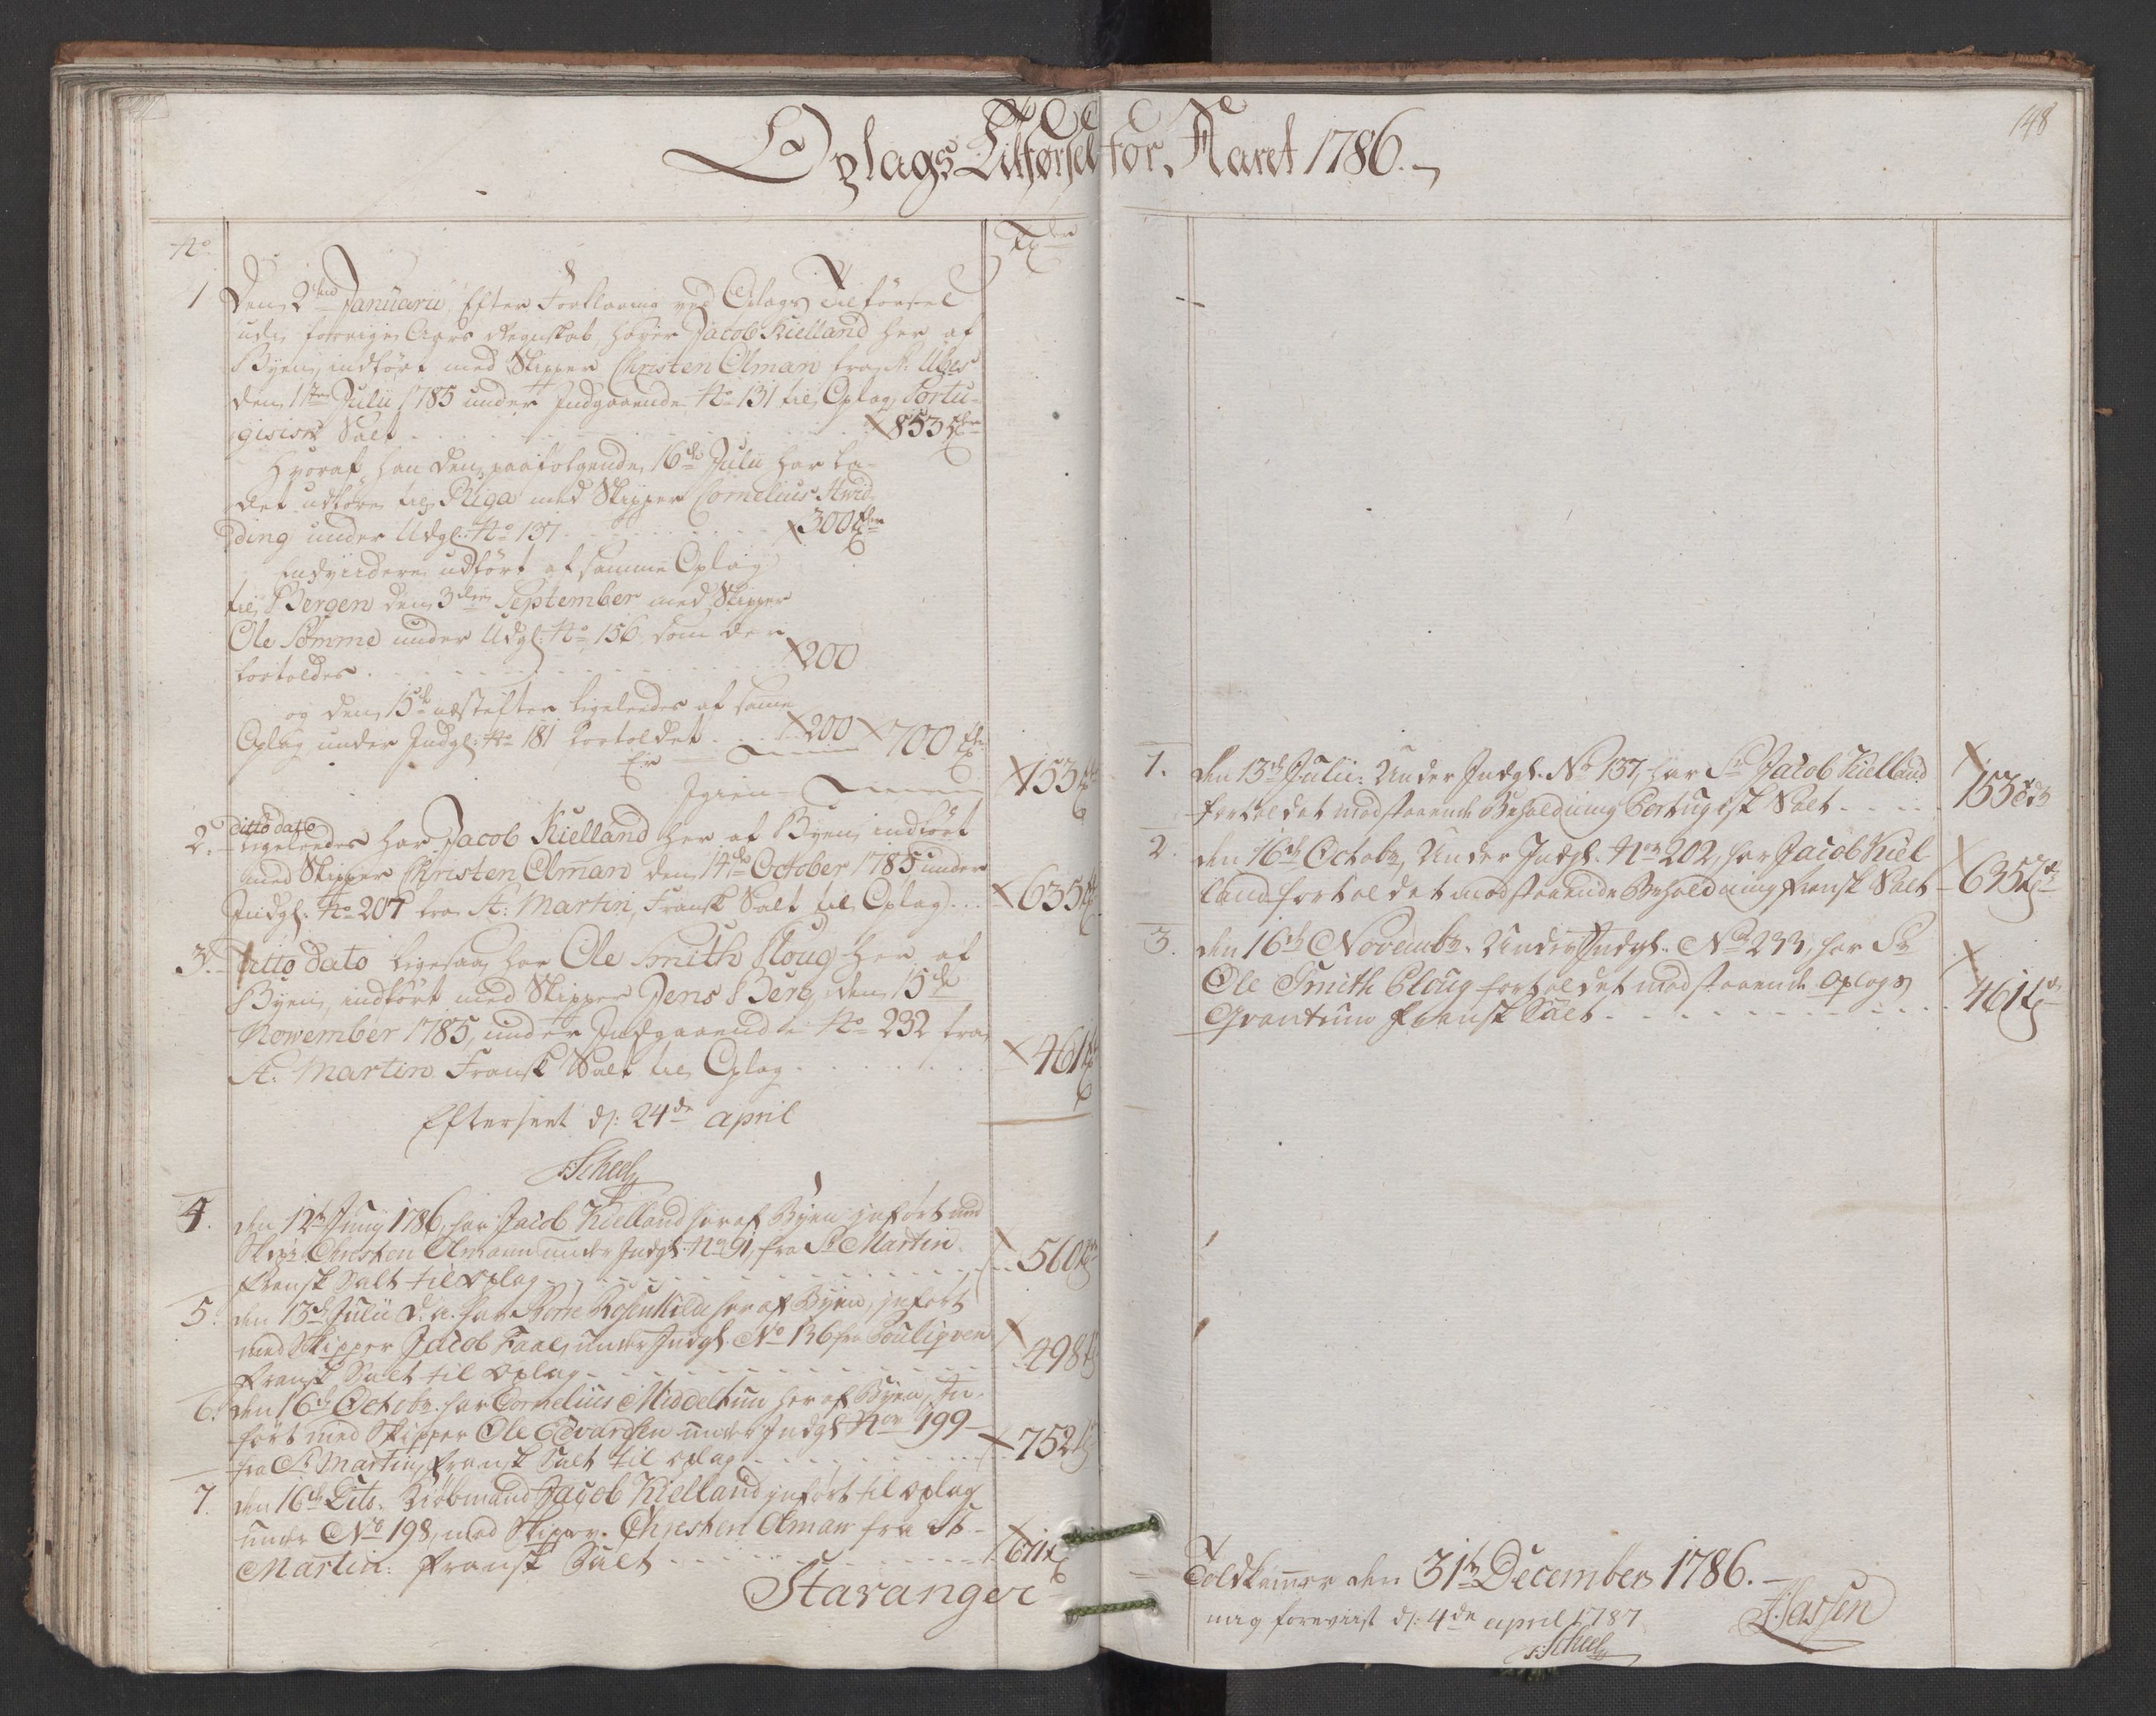 148
Oplags Tilførsel for Aaret 1786.
No
Tdr
1 Den 2den Januarii Efter Forklaring ved Oplags Tilførsel
udi forrige Aars Regnskab haver Jacob Kielland her af
Byen, indført med Skipper Christen Olman fra St. Ubes
den 1ste Julii 1785 under Indgaaende No 131 til Oplag Portu-
gisisk Salt . . . 853 Tdr
Hvoraf han den paafølgende 16de Julii har la-
det udføre til Riga med Skipper Cornelius Hvid-
ding under Udgl: No 137 . . . 300 Tdr
Endviidere udført af samme Oplag
til Bergen den 3den September med Skipper
Ole Sømme under Udgl: No 156 som der
fortoldes . . . 200
og den 15de næstefter ligeledes af samme
Oplag under Indgl: No 181 fortoldet . . . 200 700 Tdr
Er
Igien 153 Tdr
2. ditto dato
Ligeleedes har Jacob Kielland her af Byen indført
med Skipper Christen Olman den 14de October 1785 under
Indgl. No 207 fra St: Martin, Fransk Salt til Oplag . . . 635 Tdr
3. Ditto dato ligesaa har Ole Smith Ploug her af
Byen, indført med Skipper Jens Berg, den 15de
November 1785, under Indgaaende No 232 fra
St. Martin Fransk Salt til Oplag . . . 461 Tdr
Efterseet d: 24de april
Scheel
4. den 12te Juny 1786, har Jacob Kielland her af Byen indført med
Skipr. Christen Olmann under Indgl. No 91, fra St Martin
Fransk Salt til Oplag . . . 560 Tdr
5. den 13de Julii d. a. har Børre Rosenkilde her af Byen, indført
med Skipper Jacob Faae, under Indgl. No 136 fra Pouliqven
Fransk Salt til Oplag . . . 498 Tdr
6. den 16de Octobr. har Cornelius Middelthun her af Byen, In-
ført med Skipper Ole Edvardsen under Indgl No 199
fra St Martin, Fransk Salt til Oplag . . . 752 Tdr
7. den 16de Dito. Kiøbmand Jacob Kielland indført til Oplag
under No 198, med Skipper. Christen Olman fra St
Martin: Fransk Salt . . . 611 Tdr
Stavanger
1. den 13de Julii: Under Indgl. No 137, har Sr Jacob Kielland
fortoldet modstaaende Beholdning Portugisk Salt . . . 153 Tdr
2. den 16de Octobr, Under Indgl. No 202, har Jacob Kiel
land fortoldet modstaaende Beholdning Fransk Salt 635 Tdr
3. den 16de Novembr. Under Indgl. No 233, har Sr
Ole Smith Ploug fortoldet modstaaende Oplags
Qvantum Fransk Salt . . . 461 Tdr
Toldkamer den 31te December 1786.
mig foreviist d: 4de april 1787
Scheel